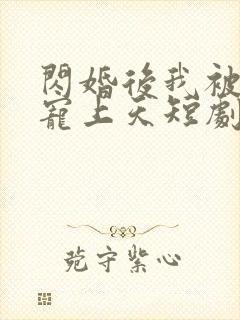 閃婚後我被
寵上天短劇
菀守紫心